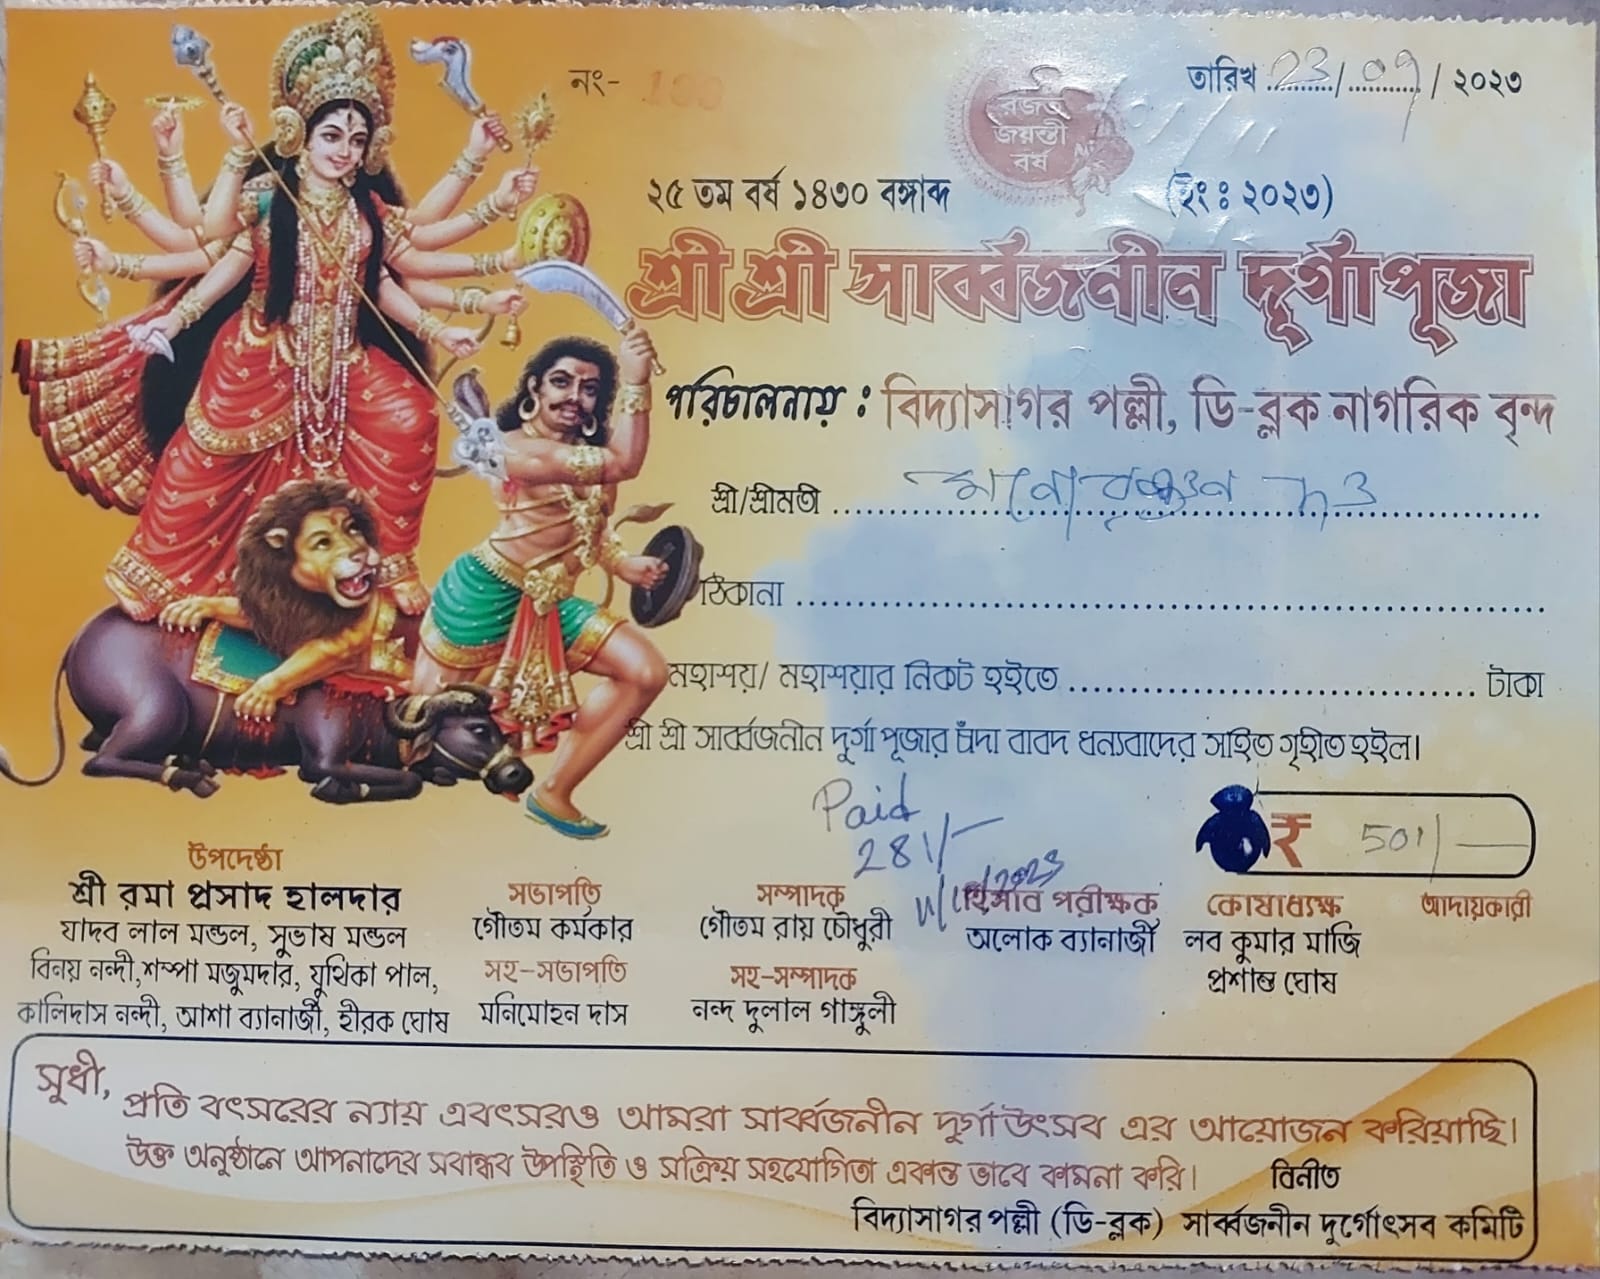 নং- 100
তারিখ 23/09/২০২৩
রজত
জয়ন্তী
বর্ষ
২৫ তম বর্ষ ১৪৩০ বঙ্গাব্দ (ইং ঃ ২০২৩)
শ্রী শ্রী সার্ব্বজনীন দূর্গাপূজা
পরিচালনায় : বিদ্যাসাগর পল্লী, ডি-ব্লক নাগরিক বৃন্দ
শ্রী/শ্রীমতী ........ দত্ত
ঠিকানা ........
মহাশয়/ মহাশয়ার নিকট হইতে ........ টাকা
শ্রী শ্রী সার্ব্বজনীন দুর্গা পূজার চাঁদা বাবদ ধন্যবাদের সহিত গৃহীত হইল।
Paid
281/-
₹ 501/-
উপদেষ্ঠা
শ্রী রমা প্রসাদ হালদার
যাদব লাল মন্ডল, সুভাষ মন্ডল
বিনয় নন্দী,শম্পা মজুমদার, যুথিকা পাল,
কালিদাস নন্দী, আশা ব্যানার্জী, হীরক ঘোষ
সভাপতি
গৌতম কর্মকার
সহ-সভাপতি
মনিমোহন দাস
সম্পাদক
গৌতম রায় চৌধুরী
সহ-সম্পাদক
নন্দ দুলাল গাঙ্গুলী
হিসাব পরীক্ষক
অলোক ব্যানার্জী
কোষাধ্যক্ষ
লব কুমার মাজি
প্রশান্ত ঘোষ
আদায়কারী
সুধী,
প্রতি বৎসরের ন্যায় এবৎসরও আমরা সার্ব্বজনীন দুর্গাউৎসব এর আয়োজন করিয়াছি।
উক্ত অনুষ্ঠানে আপনাদের সবান্ধব উপস্থিতি ও সক্রিয় সহযোগিতা একান্ত ভাবে কামনা করি।
বিনীত
বিদ্যাসাগর পল্লী (ডি-ব্লক) সার্ব্বজনীন দুর্গোৎসব কমিটি